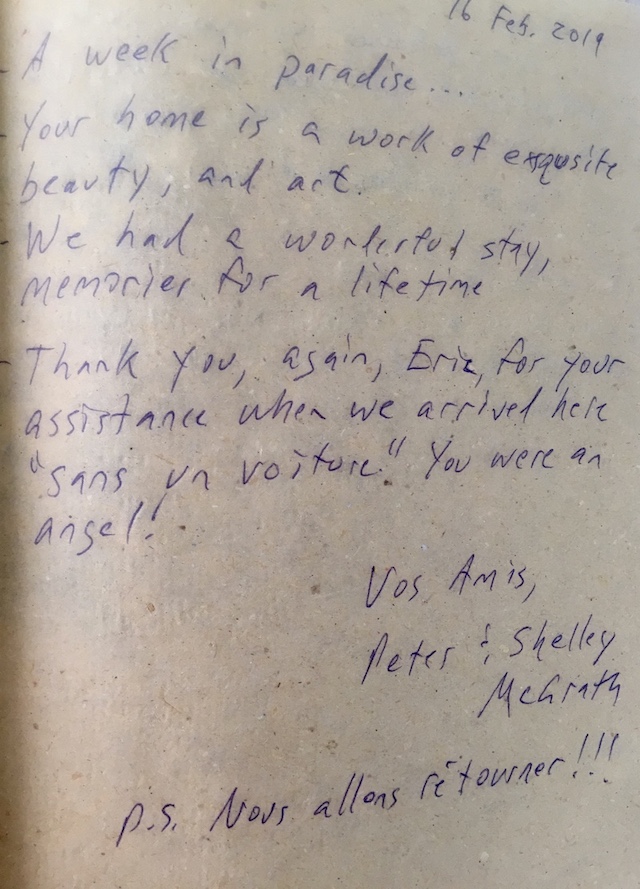 16 Feb. 2019
- A week in paradise...
- Your home is a work of exqusite
beauty, and art.
- We had a wonderful stay,
memories for a lifetime
- Thank you, again, Eric, for your
assistance when we arrived here
"sans un voiture" You were an
angel!
Vos Amis,
Peter & Shelley
McGrath
P.S. Nous allons rétourner!!!